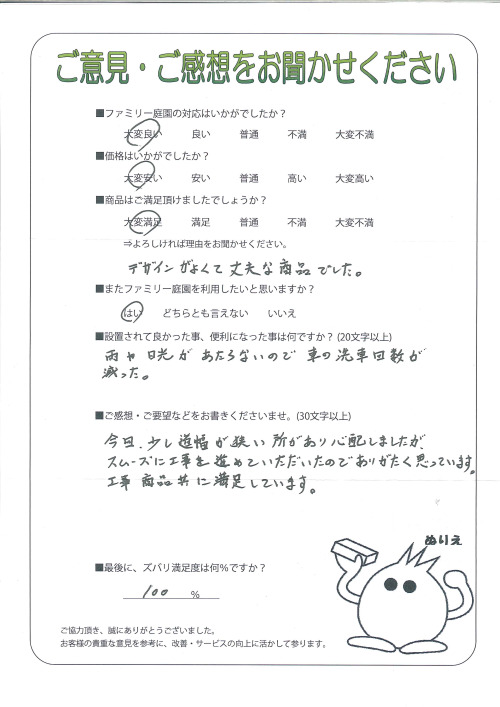 ご意見・ご感想をお聞かせください
■ファミリー庭園の対応はいかがでしたか？
大変良い 良い 普通 不満 大変不満
■価格はいかがでしたか？
大変安い 安い 普通 高い 大変高い
■商品はご満足頂けましたでしょうか？
大変満足 満足 普通 不満 大変不満
⇒よろしければ理由をお聞かせください。
デザインがよくて丈夫な商品でした。
■またファミリー庭園を利用したいと思いますか？
はい どちらとも言えない いいえ
■設置されて良かった事、便利になった事は何ですか？(20文字以上)
雨や日光があたらないので車の洗車回数が
減った。
■ご感想・ご要望などをお書きくださいませ。(30文字以上)
今日、少し道幅が狭い所があり心配しましたが、
スムーズに工事を進めていただいたのでありがたく思っています。
工事商品共に満足しています。
ぬりえ
■最後に、ズバリ満足度は何％ですか？
100 %
ご協力頂き、誠にありがとうございました。
お客様の貴重な意見を参考に、改善・サービスの向上に活かして参ります。